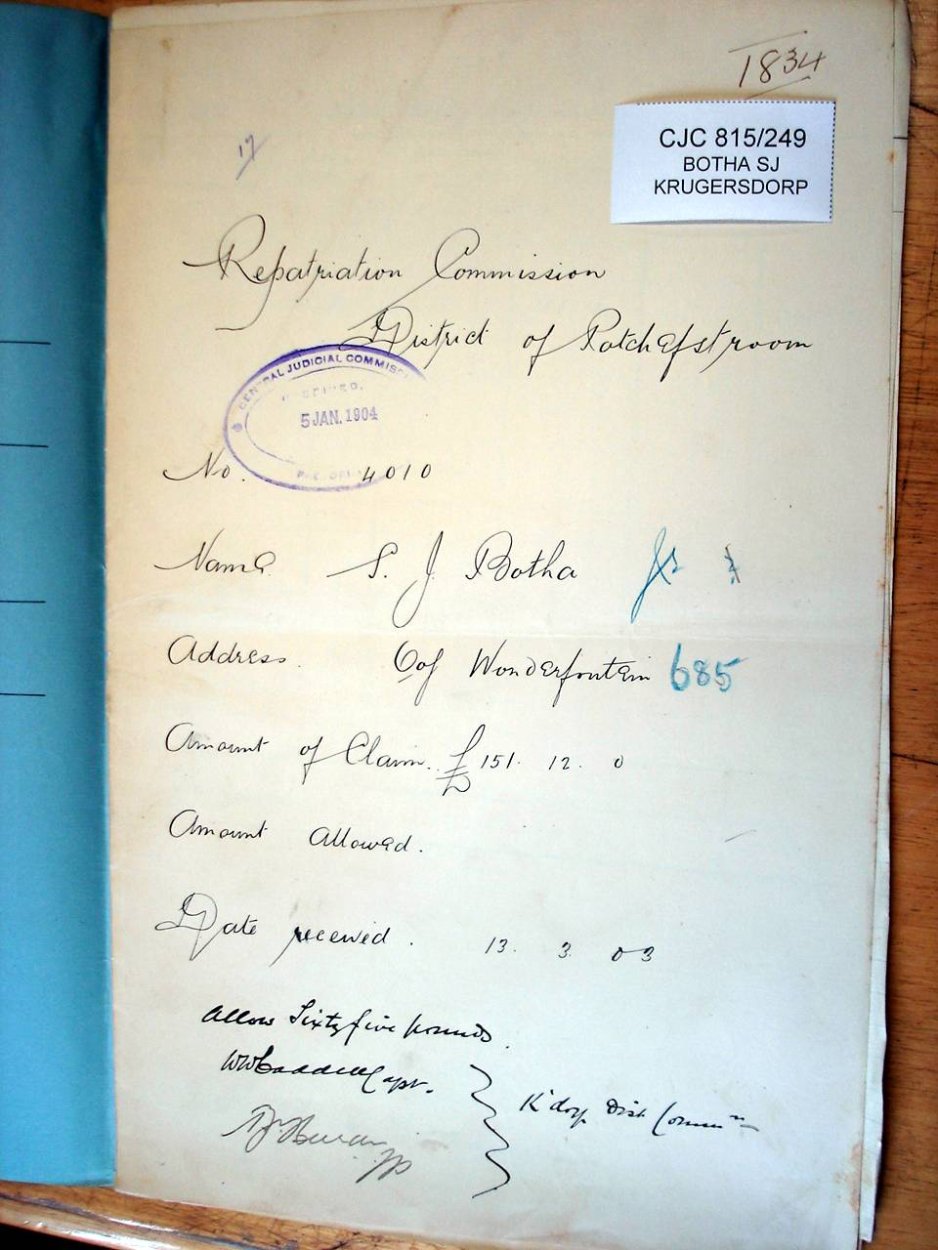 1834
CJC 815/249
BOTHA SJ
KRUGERSDORP
17
Repatriation Commission
District of Potchefstroom
CENTRAL JUDICIAL COMMISS
RECEIVED.
5 JAN. 1904
No. 4010
Name. S. J. Botha
Address. of Wonderfontein 685
Amount of Claim. £151. 12. 0
Amount Allowed.
Date received. 13. 3. 03
Allow Sixty five pounds.
Capt.
K'dorp Dist Commn